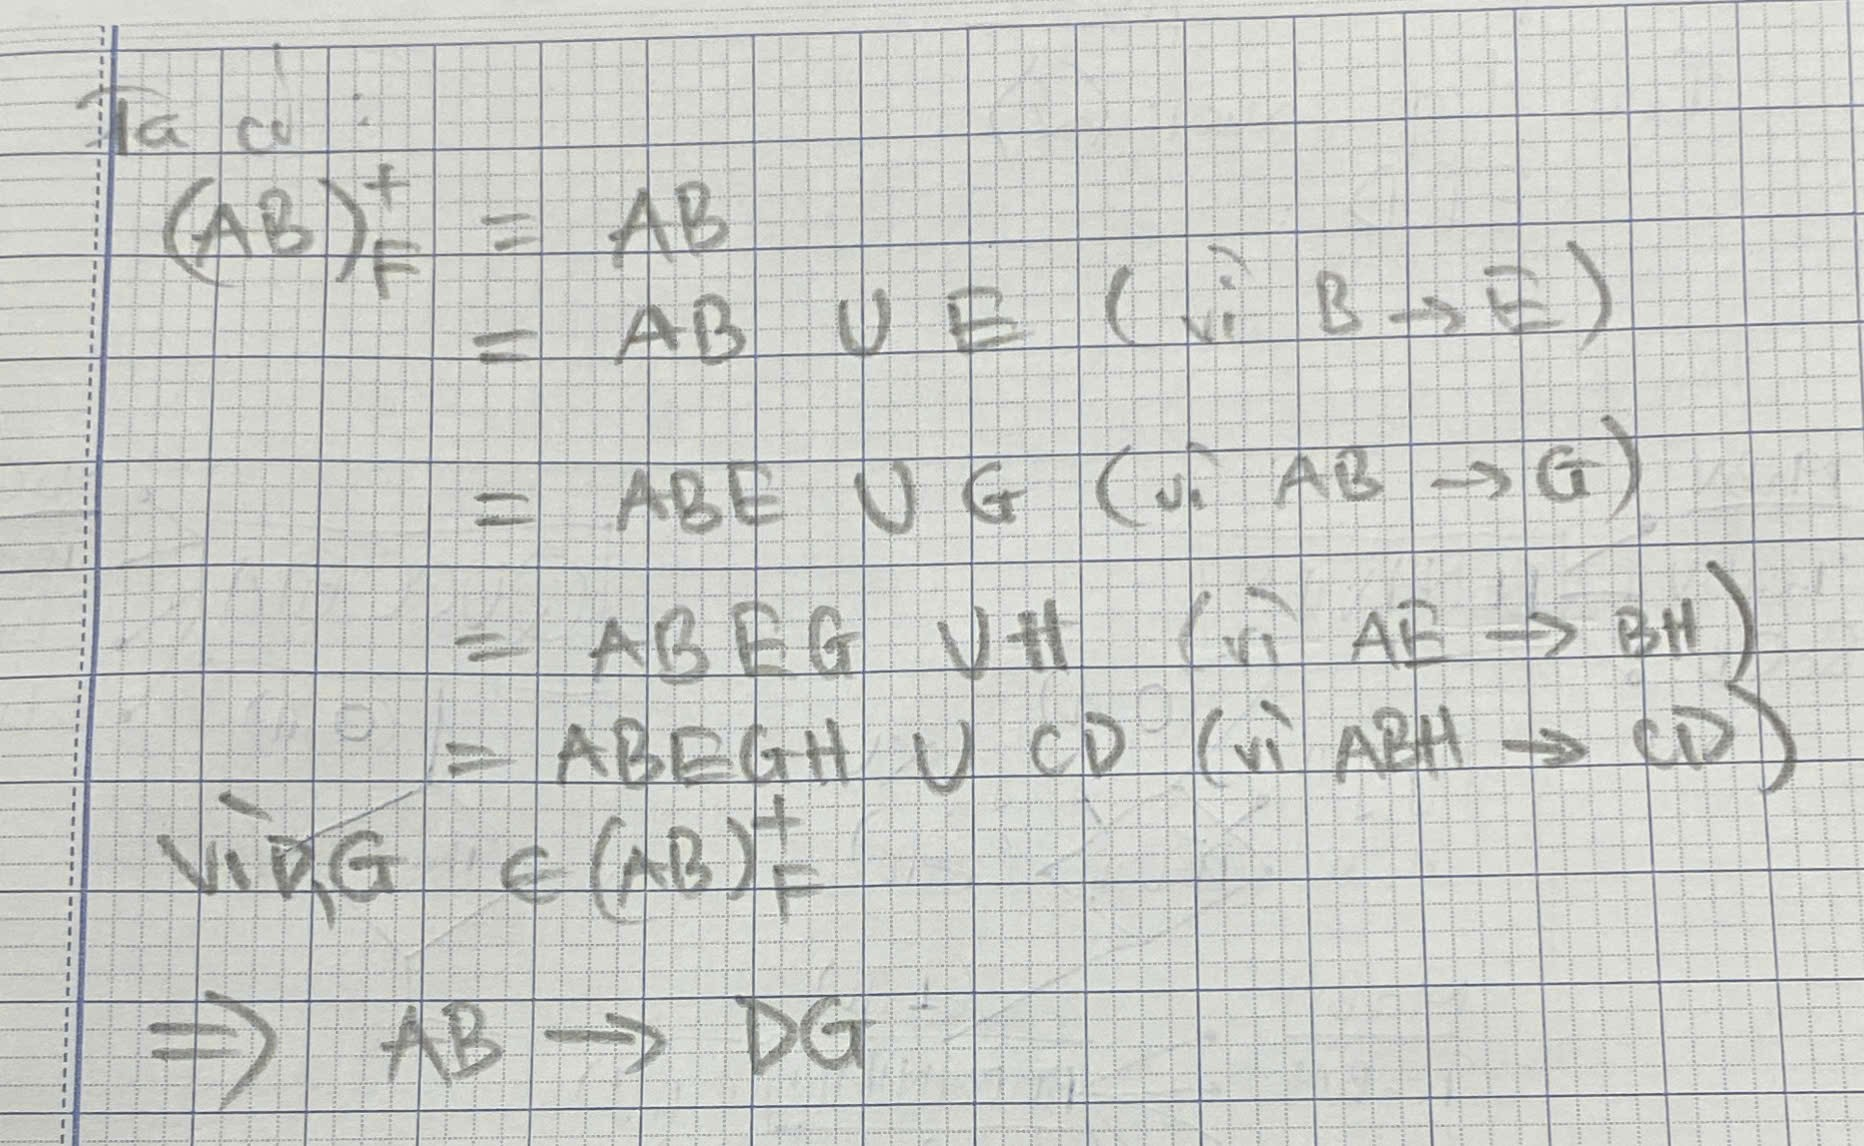 Ta có :
(AB)⁺_F = AB
= AB ∪ E (vì B → E)
= ABE ∪ G (vì AB → G)
= ABEG ∪ H (vì AE → BH)
= ABEGH ∪ CD (vì ABH → CD)
Vì D,G ∈ (AB)⁺_F
⇒ AB → DG